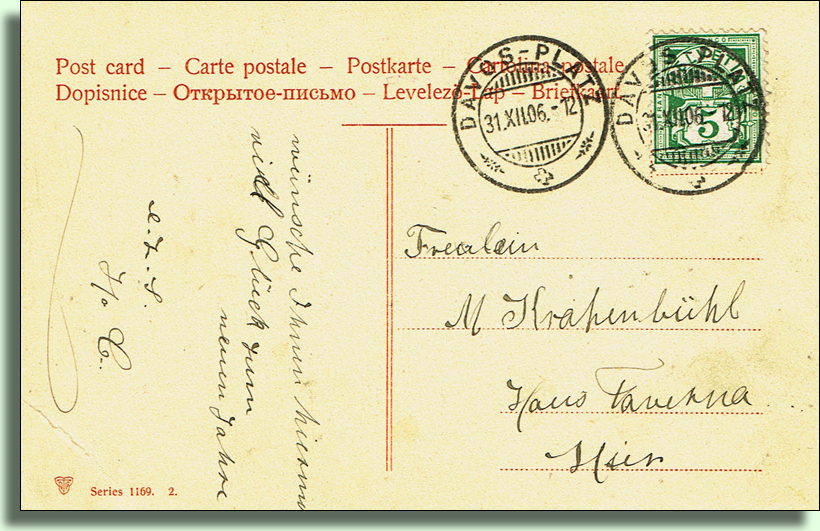 Post card – Carte postale – Postkarte – Cartolina postale
Dopisnice – Открытое-письмо – Levelező-Lap – Briefkaart
DAVOS-PLATZ
31.XII.06.-12
DAVOS-PLATZ
31.XII.06.-12
5
wünsche Ihnen hiermit
viel Glück zum
neuen Jahre
Frealein
M Krähenbühl
Haus Taverna
Hier
Series 1169. 2.